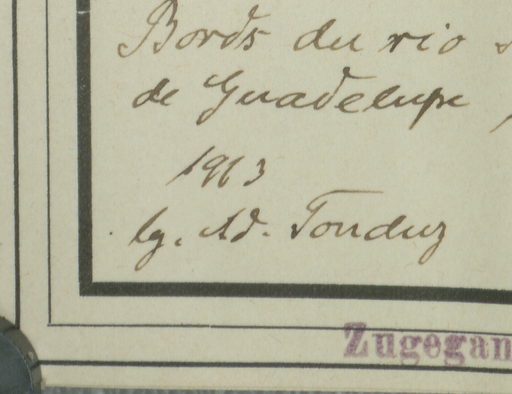 Bords du rio
de Guadelupe
1913
lg. Ad. Tonduz
Zugegan